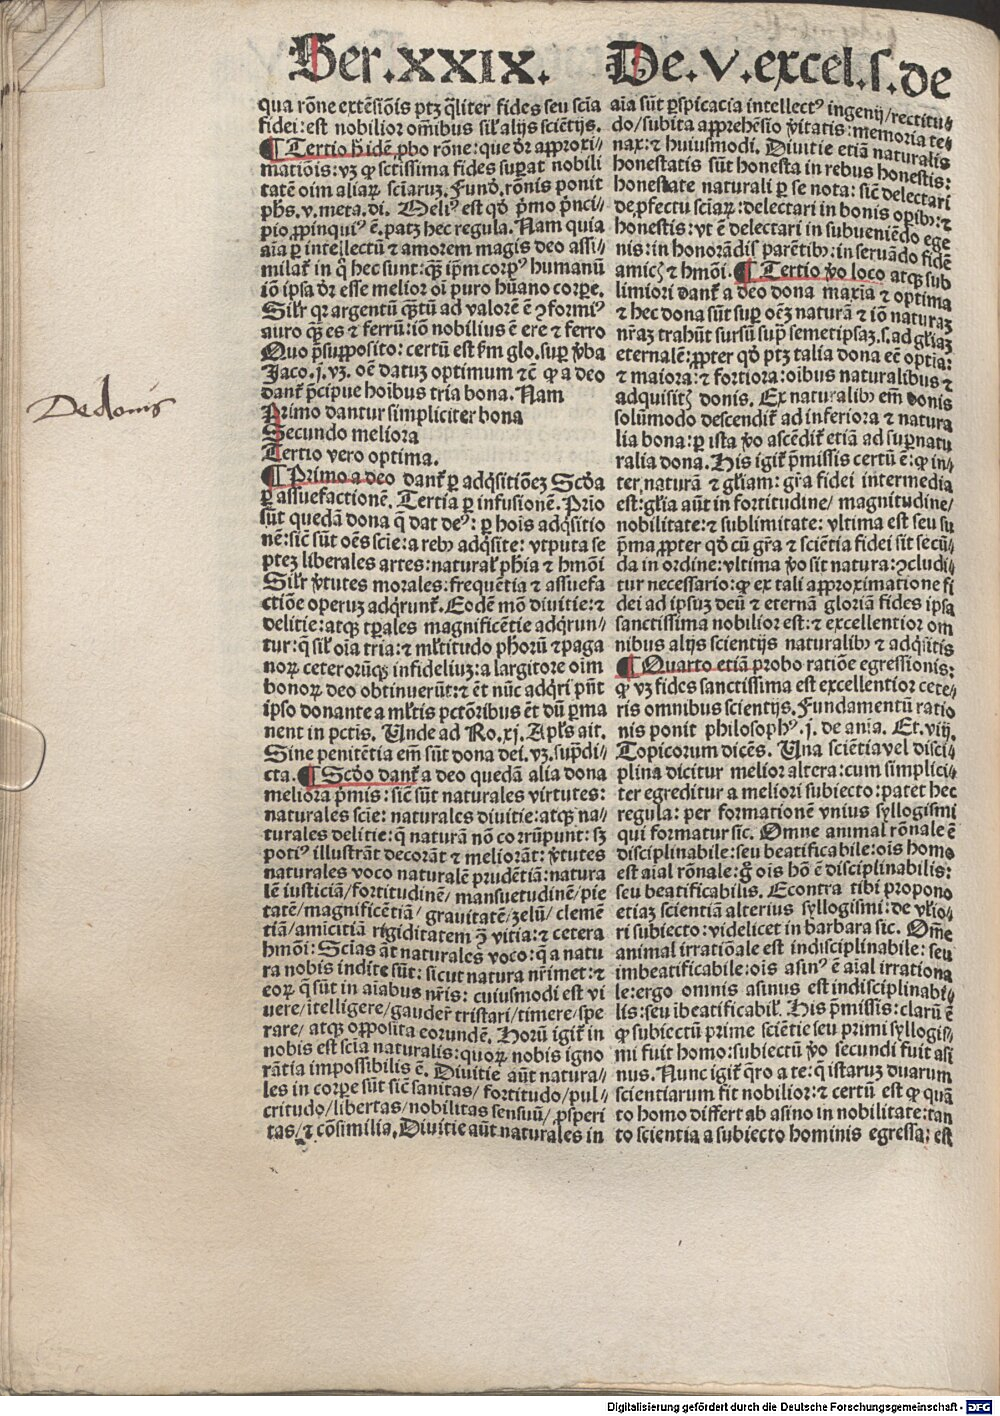 Ser.XXIX. De.V.excel.s.de
qua rōne extēsiōis ptꝫ q̄liter fides seu scīa
fidei:est nobilior om̄ibus sil̄ alijs sciētijs.
¶ Tertio h̄ idē ꝓbo rōne:que dr̄ approxi-
matiōis:vꝫ ꝙ sctissima fides suꝑat nobili
tatē oīm aliaꝝ sciaruꝫ. Fund. rōnis ponit
ph̄s.v.meta.di. Meli⁹ est qd̄ p̄mo p̄nci-
pio ꝓpinqui⁹ ē.patꝫ hec regula. Nam quia
aīa ꝑ intellectū ⁊ amorem magis deo assi-
milat̄ in q̄ hec sunt:qꝫ̄ ip̄m corp⁹ humanū
iō ipsa dr̄ esse melior oī puro hūano corpe.
Silr̄ qr argentū qꝫ̄tū ad valorē ē ꝯformi⁹
auro qꝫ̄ es ⁊ ferrū:iō nobilius ē ere ⁊ ferro
Quo p̄supposito: certū est ẜm glo.suꝑ ꝟba
Jaco.j.vꝫ. oē datuꝫ optimum ⁊c̄ ꝙ a deo
dant̄ p̄cipue hoībus tria bona. Nam
Primo dantur simpliciter bona
Secundo meliora
Tertio vero optima.
¶ Primo a deo dant̄ ꝑ adq̄sitiōeꝫ Scd̄a
ꝑ assuefactionē. Tertia ꝑ infusionē. Prīo
sūt quedā dona q̄ dat de⁹: ꝑ hoīs adq̄sitio
nē:sic̄ sūt oēs scīe:a rebꝰ adq̄site: vtputa se
pteꝫ liberales artes:natural̄ ph̄ia ⁊ hmōi
Silr̄ ꝟtutes morales:frequētia ⁊ assuefa
ctiōe operuꝫ adq̄runt̄. Eodē mō diuitie:⁊
delitie:atqꝫ tꝑales magnificētie adq̄run-
tur:q̄ sil̄ oīa tria:⁊ ml̄titudo ph̄oꝝ ⁊ paga
noꝝ ceteroꝝūqꝫ infideliuꝫ:a largitore oīm
bonoꝝ deo obtinuerūt:⁊ ēt nūc adq̄ri pn̄t
ipso donante a ml̄tis pctōribus ēt dū ꝑma
nent in pctis. Unde ad Ro.xj.Apl̄s ait.
Sine penitētia em̄ sūt dona dei.vꝫ.sup̄di-
cta. ¶ Scd̄o dant̄ a deo quedā alia dona
meliora p̄mis: sic̄ sūt naturales virtutes:
naturales scīe: naturales diuitie:atqꝫ na-
turales delitie:q̄ naturā nō corrūpunt: sꝫ
poti⁹ illustrāt decorāt ⁊ meliorāt: ꝟtutes
naturales voco naturalē prudētiā:natura
lē iusticiā/fortitudinē/mansuetudinē/pie
tatē/magnificētiā/ grauitatē/ꝫelū/ clemē
tiā/amicitiā rigiditatem ꝯ̄ vitia: ⁊ cetera
hmōi: Scīas āt naturales voco: q̄ a natu
ra nobis indite sūt: sicut natura nr̄imet:⁊
eoꝝ q̄ sūt in aīabus nr̄is: cuiusmodi est vi
uere/ītelligere/gauder̄ tristari/timere/spe
rare/ atqꝫ opposita eorundē. Horū igit̄ in
nobis est scīa naturalis:quoꝝ nobis igno
rātia impossibilis ē. Diuitie aūt natura-
les in corpe sūt sic̄ sanitas/ fortitudo/pul-
critudo/libertas/nobilitas sensuū/ ꝓsperi
tas/⁊ cōsimilia. Diuitie aūt naturales in
aīa sūt ꝑspicacia intellect⁹ ingenij/rectitu-
do/subita apprehēsio ꝟitatis:memoria te
nax:⁊ huiusmodi. Diuitie etiā naturalis
honestatis sūt honesta in rebus honestis:
honestate naturali ꝑ se nota: sic̄ delectari
de ꝓfectu sciaꝝ:delectari in bonis opibꝰ:⁊
honestis:vt ē delectari in subueniēdo ege
nis:in honorādis parētibꝰ:in seruādo fidē
amicꝭ ⁊ hmōi. ¶ Tertio ꝟo loco atqꝫ sub
limiori dant̄ a deo dona maxīa ⁊ optima
⁊ hec dona sūt suꝑ oēꝫ naturā ⁊ iō naturaꝫ
nr̄aꝫ trahūt sursū sup̄ semetipsaꝫ.s.ad gl̄iaꝫ
eternalē:ꝓpter qd̄ ptꝫ talia dona eē optīa:
⁊ maiora:⁊ fortiora:oībus naturalibus ⁊
adquisitꝭ donis. Ex naturalibꝰ em̄ donis
solūmodo descendit̄ ad inferiora ⁊ natura
lia bona:ꝑ ista ꝟo ascēdit̄ etiā ad suꝑnatu
ralia dona. His igit̄ p̄missis certū ē: ꝙ in-
ter naturā ⁊ gl̄iam: gr̄a fidei intermedia
est:gl̄ia aūt in fortitudine/ magnitudine/
nobilitate:⁊ sublimitate: vltima est seu su
p̄ma ꝓpter qd̄ cū gr̄a ⁊ sciētia fidei sit secū-
da in ordine:vltima ꝟo sit natura:ꝯcludi-
tur necessario:ꝙ ex tali approximatione fi
dei ad ipsuꝫ deū ⁊ eternā gloriā fides ipsa
sanctissima nobilior est:⁊ excellentior om
nibus alijs scientijs naturalibꝰ ⁊ adq̄sitis
¶ Quarto etiā probo ratiōe egressionis:
ꝙ vꝫ fides sanctissima est excellentior cete-
ris omnibus scientijs. Fundamentū ratio
nis ponit philosoph⁹.j. de aīa. Et.viij.
Topicorum dicēs. Una sciētia vel disci-
plina dicitur melior altera: cum simplici-
ter egreditur a meliori subiecto: patet hec
regula: per formationē vnius syllogismi
qui formatur sic. Omne animal rōnale ē
disciplinabile:seu beatificabile:oīs homo
est aīal rōnale:g̊ oīs hō ē disciplinabilis:
seu beatificabilis. Econtra tibi propono
etiaꝫ scientiā alterius syllogismi:de vīlio-
ri subiecto:videlicet in barbara sic. Om̄e
animal irratiōale est indisciplinabile: seu
imbeatificabile:oīs asin⁹ ē aīal irrationa
le:ergo omnis asinus est indisciplinabi-
lis:seu ībeatificabil̄. His p̄missis:clarū ē
ꝙ subiectū prime sciētie seu primi syllogis-
mi fuit homo:subiectū ꝟo secundi fuit asi
nus. Nunc igit̄ q̄ro a te:q̄ istaruꝫ duarum
scientiarum sit nobilior:⁊ certū est ꝙ quā
to homo differt ab asino in nobilitate:tan
to scientia a subiecto hominis egressa: est
De donis
Digitalisierung gefördert durch die Deutsche Forschungsgemeinschaft - DFG